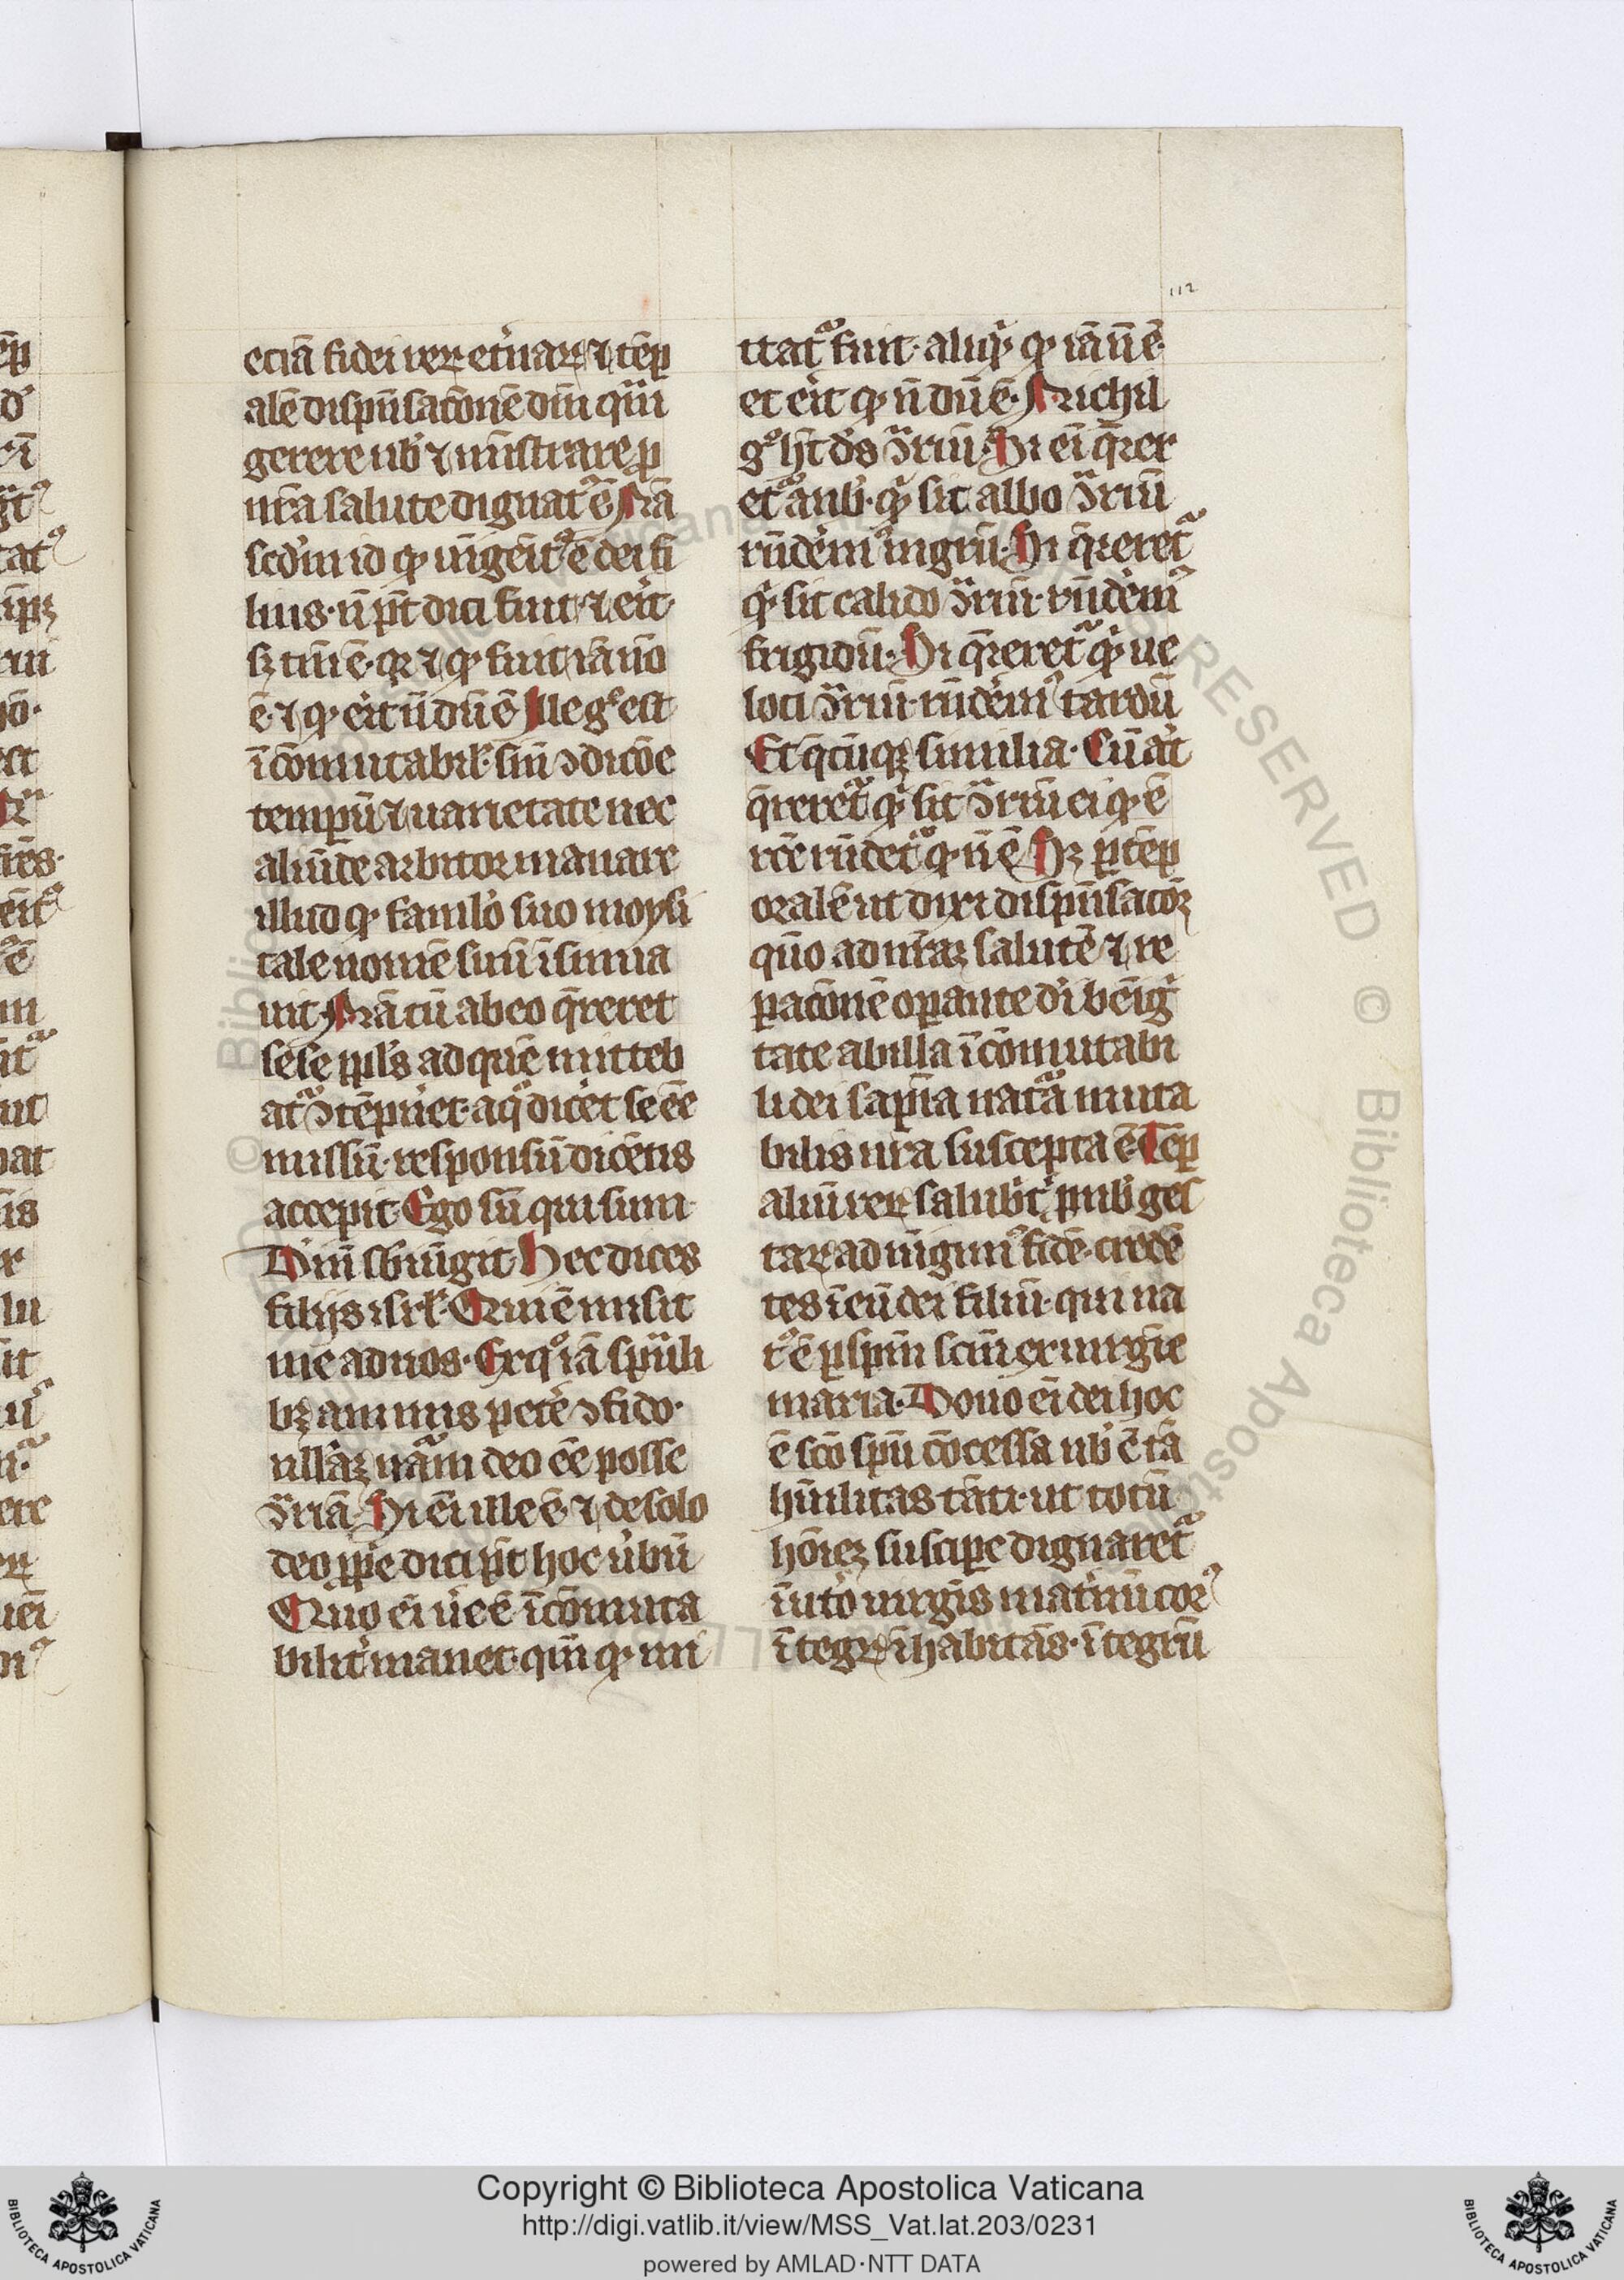 112
eciā fidei rer̄ et̄narꝝ ⁊ tēp
alē dispn̄satōnē dn̄i qm̄
gerere nob̾ ⁊ mi̅strare ꝓ
nr̄a salute dignatꝰ ē Nā
scd̾m id qͩ vnigēitꝰ ē dei fi
lius· n̄ pt̄ dici fuit ⁊ erit·
sꝫ tm̄ ē· qꝛ ⁊ qͩ fuit iā nō
ē· ⁊ qͩ erit nōdū ē Ille gͦ est
ī cōmutabil̾ sin̄ ꝯdicōe
tempꝝ ⁊ uarietate nec
aliūde arbitror manare
illud qͩ famlo̾ suo moysi
tale nomē suū īsinua
uit· Nā cū ab eo q̄reret
se se ppl̾s ad quē mitteb
atᷣ ꝯtēpn̄et· a qͦ dic̾et se ēē
missū· responsū dicētis
accepit· Ego sū qui sum·
Dein̄ sbiūgit· Hec dices
filijs isrl̾· Qui ē misit
me ad uos· Ex qͦ iā spūali
bꝫ animis pate̾ ꝯfido·
nllāꝫ naᷓm deo ēē posse
ꝯᷓriā· Si eī ille ē· ⁊ de solo
deo ꝓpe dici pt̄ hoc u̾bū
Quo eī ue̾ ē ī cōmuta
bilit̾ manet· qm̄ qͩ mi
ttatᷣ fuit· aliqͩ qͩ iā n̄ ē·
et erit qͩ nōdū ē· Nichil
gͦ ht̄ ds̾ ꝯᷓriū· Si eī q̄rer
etᷣ a nob̾· qͩ sit albo ꝯᷓriū
rn̄dēmꝰ nigrū· Si q̄reretᷣ
qͩ sit calido ꝯᷓriū· rn̄dēmꝰ
frigidū· Si q̄reretᷣ qͩ ue
loci ꝯᷓriū· rn̄dēmꝰ tardū
Et q̄cūqꝫ similia· Cū at̾
q̄reretᷣ qͩ sit ꝯᷓriū ei qͩ ē
rc̄e rn̄detᷣ qͩ n̄ ē Sꝫ ꝑ tēp
oralē ut dixi dispn̄satōꝫ
qn̄o ad nr̄aꝫ salutē ⁊ re
ꝑatōnē oꝑante di̾ bēig
tate ab illa ī cōmutabi
li dei sapīa naᷓta muta
bilis nr̄a suscepta ē Tēp
aliū rerꝝ salubit̾ ꝓ nob̾ ges
tarꝝ adiūgimꝰ fidē· credē
tes ī eū dei filiū· qui na
tꝰ ē ꝑ spm̄ scm̄ ex uirgīe
maria· Dono eī dei hoc
ē scō spū cōcessa nob̾ ē tā
hūilitas tāti· ut totū
hōieꝫ suscipe dignaretᷣ
ī ut̾o uirgīs mat̾nū corꝰ
ītegrꝝ īhabitās· ītegrū
Copyright © Biblioteca Apostolica Vaticana
http://digi.vatlib.it/view/MSS_Vat.lat.203/0231
powered by AMLAD·NTT DATA
BIBLIOTECA APOSTOLICA VATICANA
BIBLIOTECA APOSTOLICA VATICANA